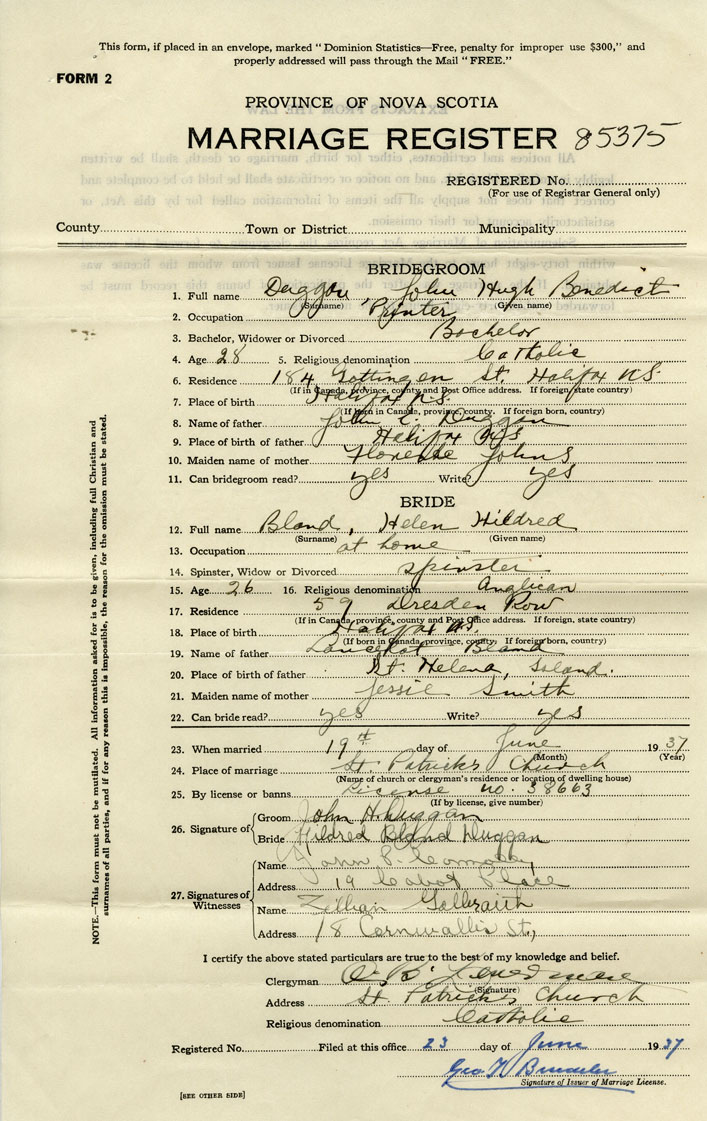 This form, if placed in an envelope, marked "Dominion Statistics—Free, penalty for improper use $300," and
properly addressed will pass through the Mail "FREE."
FORM 2
PROVINCE OF NOVA SCOTIA
MARRIAGE REGISTER 85375
REGISTERED No.
(For use of Registrar General only)
County Town or District Municipality
BRIDEGROOM
1. Full name Duggan, John Hugh Benedict
(Surname) (Given name)
2. Occupation Printer
3. Bachelor, Widower or Divorced Bachelor
4. Age 28 5. Religious denomination Catholic
6. Residence 184 Gottingen St. Halifax N.S.
(If in Canada, province, county and Post Office address. If foreign, state country)
7. Place of birth Halifax N.S.
(If born in Canada, province, county. If foreign born, country)
8. Name of father John C. Duggan
9. Place of birth of father Halifax N.S
10. Maiden name of mother Florence Johns
11. Can bridegroom read? yes Write? yes
BRIDE
12. Full name Bland, Helen Hildred
(Surname) (Given name)
13. Occupation at home
14. Spinster, Widow or Divorced spinster
15. Age 26 16. Religious denomination Anglican
17. Residence 59 Dresden Row
(If in Canada, province, county and Post Office address. If foreign, state country)
18. Place of birth Halifax N.S.
(If born in Canada, province, county. If foreign born, country)
19. Name of father Lancelot Bland
20. Place of birth of father St. Helena, Island.
21. Maiden name of mother Jessie Smith
22. Can bride read? yes Write? yes
23. When married 19th day of June 1937
(Month) (Year)
24. Place of marriage St. Patrick's Church
(Name of church or clergyman's residence or location of dwelling house)
25. By license or banns License no. 38663
(If by license, give number)
26. Signature of
Groom John H. Duggan
Bride Hildred Bland Duggan
27. Signatures of Witnesses
Name John
Address 19 Cabot Place
Name Galbraith
Address 18 Cornwallis St,
I certify the above stated particulars are true to the best of my knowledge and belief.
Clergyman
(Signature)
Address St. Patrick's Church
Religious denomination Catholic
Registered No. Filed at this office 23 day of June 1937
Geo
Signature of Issuer of Marriage License.
[SEE OTHER SIDE]
NOTE.—This form must not be mutilated. All information asked for is to be given, including full Christian and
surnames of all parties, and if for any reason this is impossible, the reason for the omission must be stated.